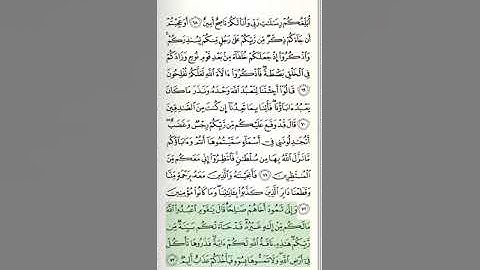 أُبَلِّغُكُمْ رِسَٰلَٰتِ رَبِّى وَأَنَا۠ لَكُمْ نَاصِحٌ أَمِينٌ ٦٨ أَوَعَجِبْتُمْ
أَن جَآءَكُمْ ذِكْرٌ مِّن رَّبِّكُمْ عَلَىٰ رَجُلٍ مِّنكُمْ لِيُنذِرَكُمْ
وَٱذْكُرُوٓا۟ إِذْ جَعَلَكُمْ خُلَفَآءَ مِنۢ بَعْدِ قَوْمِ نُوحٍ وَزَادَكُمْ
فِى ٱلْخَلْقِ بَصْۜطَةً فَٱذْكُرُوٓا۟ ءَالَآءَ ٱللَّهِ لَعَلَّكُمْ تُفْلِحُونَ
٦٩ قَالُوٓا۟ أَجِئْتَنَا لِنَعْبُدَ ٱللَّهَ وَحْدَهُۥ وَنَذَرَ مَا كَانَ
يَعْبُدُ ءَابَآؤُنَا فَأْتِنَا بِمَا تَعِدُنَآ إِن كُنتَ مِنَ ٱلصَّٰدِقِينَ
٧٠ قَالَ قَدْ وَقَعَ عَلَيْكُم مِّن رَّبِّكُمْ رِجْسٌ وَغَضَبٌ
أَتُجَٰدِلُونَنِى فِىٓ أَسْمَآءٍ سَمَّيْتُمُوهَآ أَنتُمْ وَءَابَآؤُكُم
مَّا نَزَّلَ ٱللَّهُ بِهَا مِن سُلْطَٰنٍ فَٱنتَظِرُوٓا۟ إِنِّى مَعَكُم مِّنَ
ٱلْمُنتَظِرِينَ ٧١ فَأَنجَيْنَٰهُ وَٱلَّذِينَ مَعَهُۥ بِرَحْمَةٍ مِّنَّا
وَقَطَعْنَا دَابِرَ ٱلَّذِينَ كَذَّبُوا۟ بِـَٔايَٰتِنَا وَمَا كَانُوا۟ مُؤْمِنِينَ
٧٢ وَإِلَىٰ ثَمُودَ أَخَاهُمْ صَٰلِحًا قَالَ يَٰقَوْمِ ٱعْبُدُوا۟ ٱللَّهَ
مَا لَكُم مِّنْ إِلَٰهٍ غَيْرُهُۥ قَدْ جَآءَتْكُم بَيِّنَةٌ مِّن
رَّبِّكُمْ هَٰذِهِۦ نَاقَةُ ٱللَّهِ لَكُمْ ءَايَةً فَذَرُوهَا تَأْكُلْ
فِىٓ أَرْضِ ٱللَّهِ وَلَا تَمَسُّوهَا بِسُوٓءٍ فَيَأْخُذَكُمْ عَذَابٌ أَلِيمٌ ٧٣